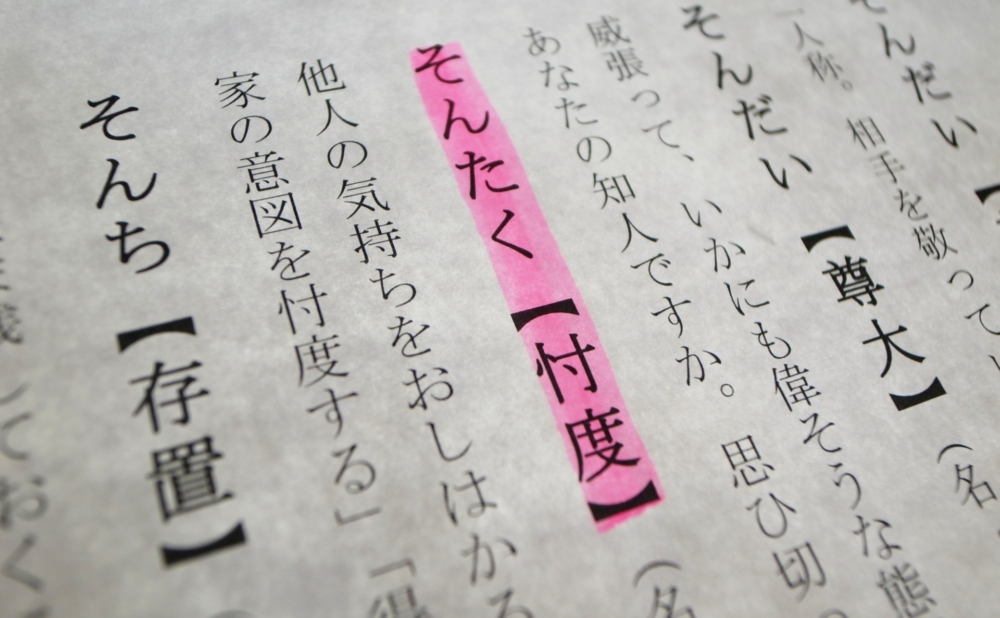 んだい【
一人称。 相手を敬って
そんだい【尊大】(名
威張って、いかにも偉そうな態
あなたの知人ですか。 思ひ切
そんたく【忖度】(名
他人の気持ちをおしはかる
家の意図を忖度する」「得
そんち【存置】
しておく